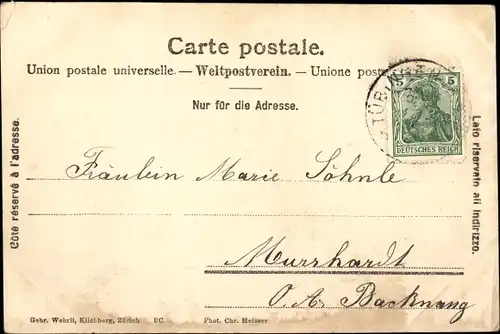 Carte postale.
Union postale universelle. — Weltpostverein. — Unione post
Nur für die Adresse.
Côté réservé à l'adresse.
Lato riservato all indirizzo.
TÜBINGEN
5 5
DEUTSCHES REICH
Fräulein Marie Söhnle
Murrhardt
O. A. Backnang
Gebr. Wehrli, Kilchberg, Zürich EC Phot. Chr. Meisser